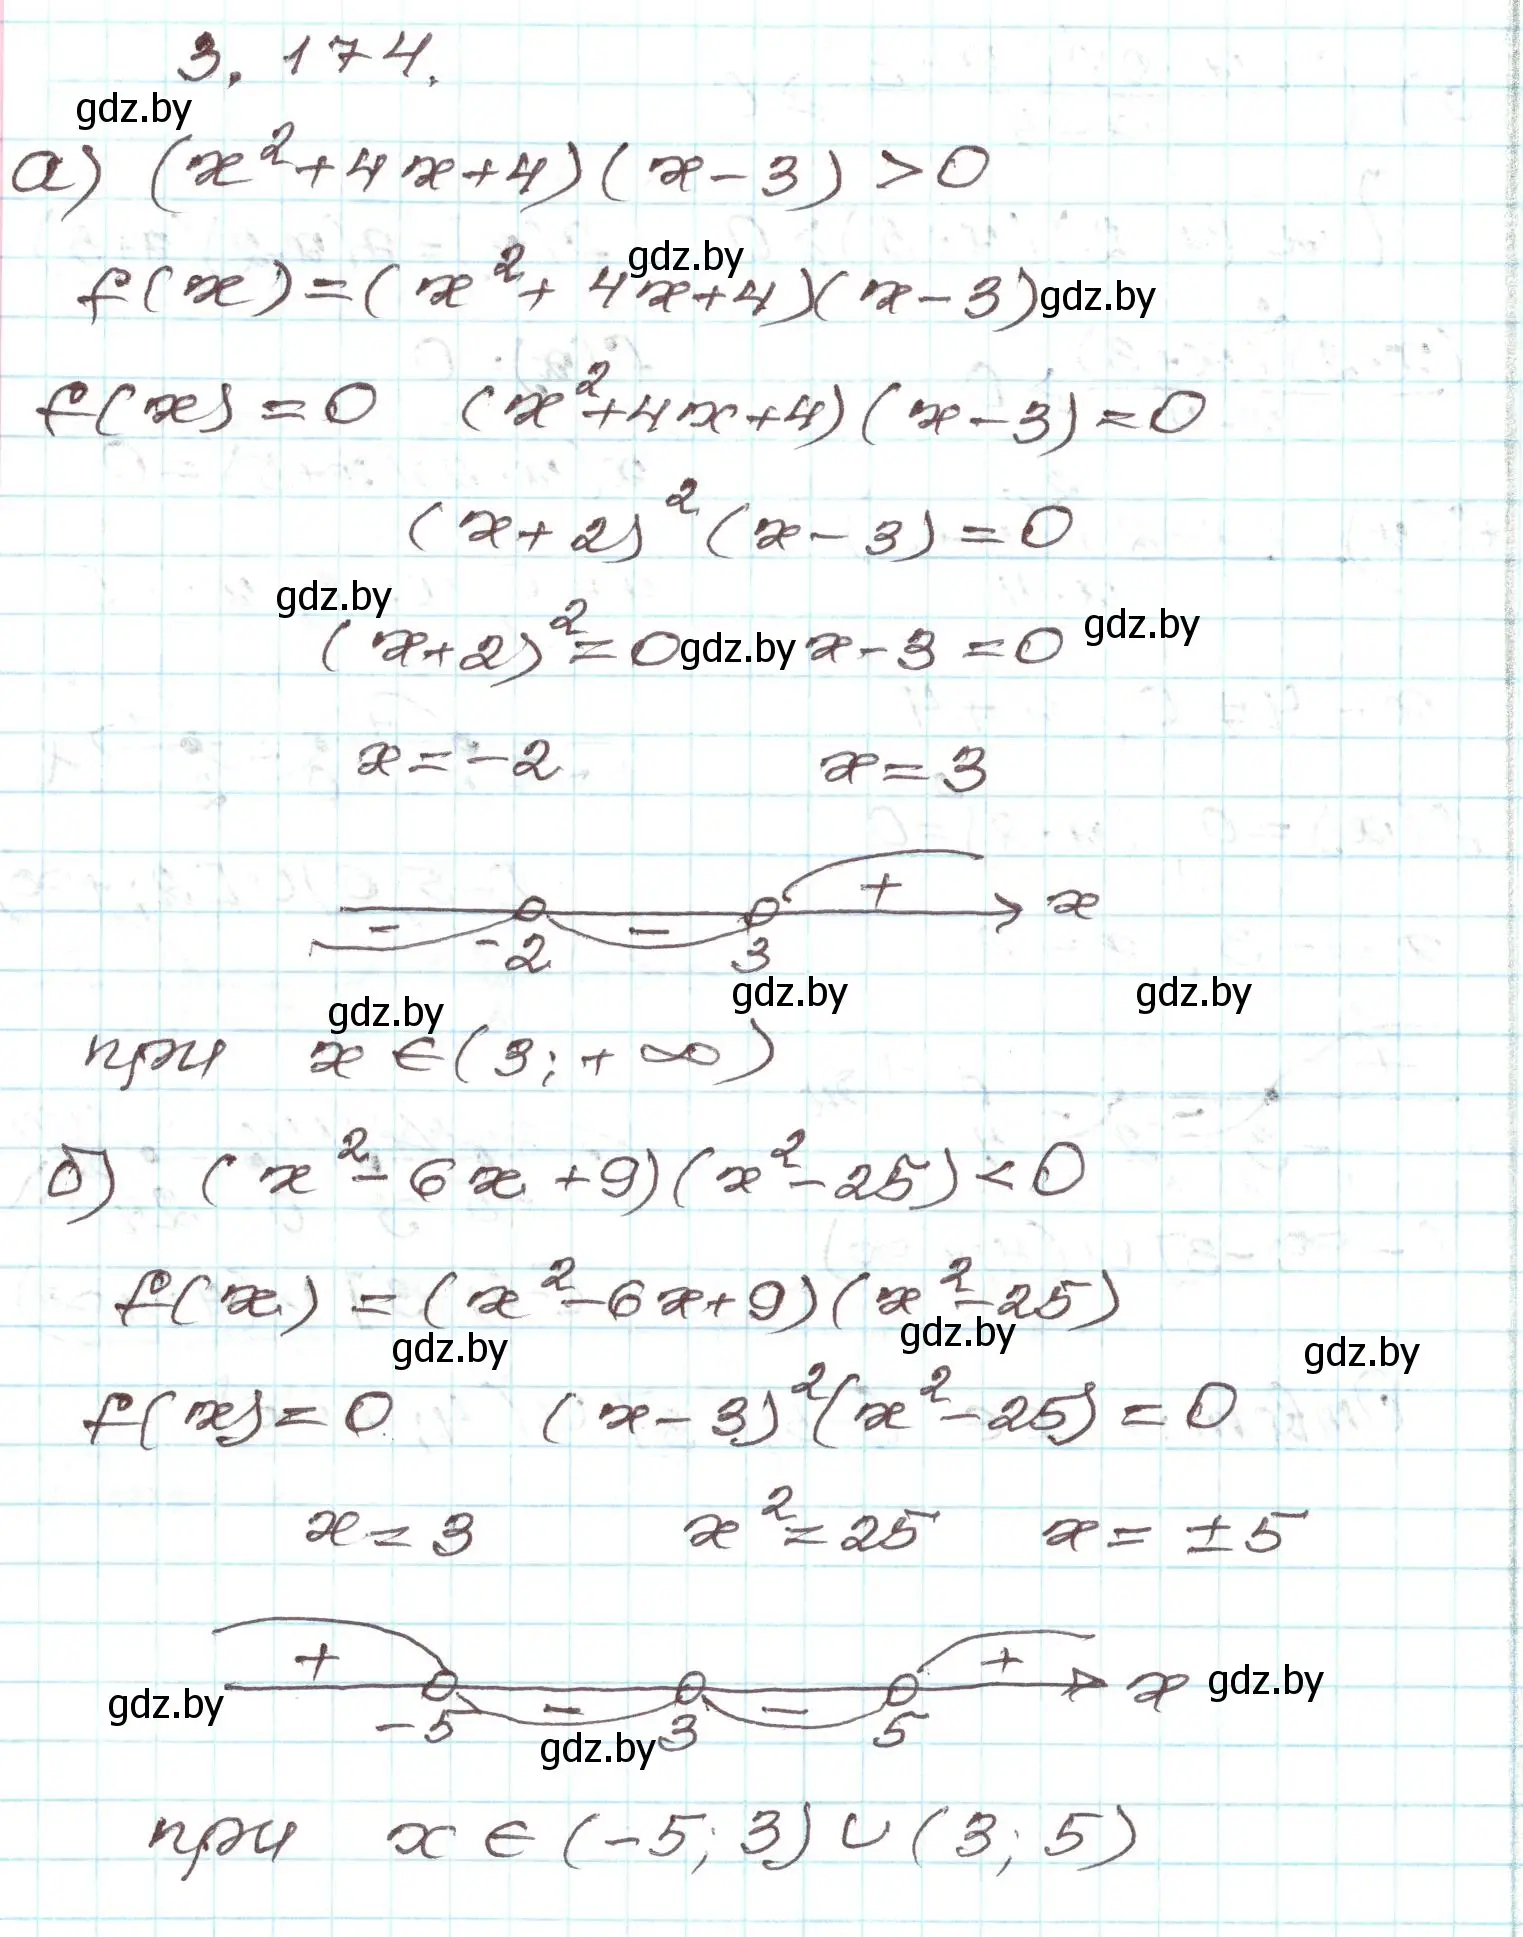 3.174.
gdz.by
а) (x²+4x+4)(x-3)>0
gdz.by
f(x)=(x²+4x+4)(x-3) gdz.by
f(x)=0 (x²+4x+4)(x-3)=0
(x+2)²(x-3)=0
gdz.by
(x+2)²=0 gdz.by x-3=0 gdz.by
x=-2 x=3
+ x
- -2 - 3
gdz.by gdz.by gdz.by
при x∈(3;+∞)
б) (x²-6x+9)(x²-25)<0
f(x)=(x²-6x+9)(x²-25)
gdz.by gdz.by gdz.by
f(x)=0 (x-3)²(x²-25)=0
x=3 x²=25 x=±5
+ + x gdz.by
gdz.by -5 - 3 - 5
gdz.by
при x∈(-5;3)∪(3;5)